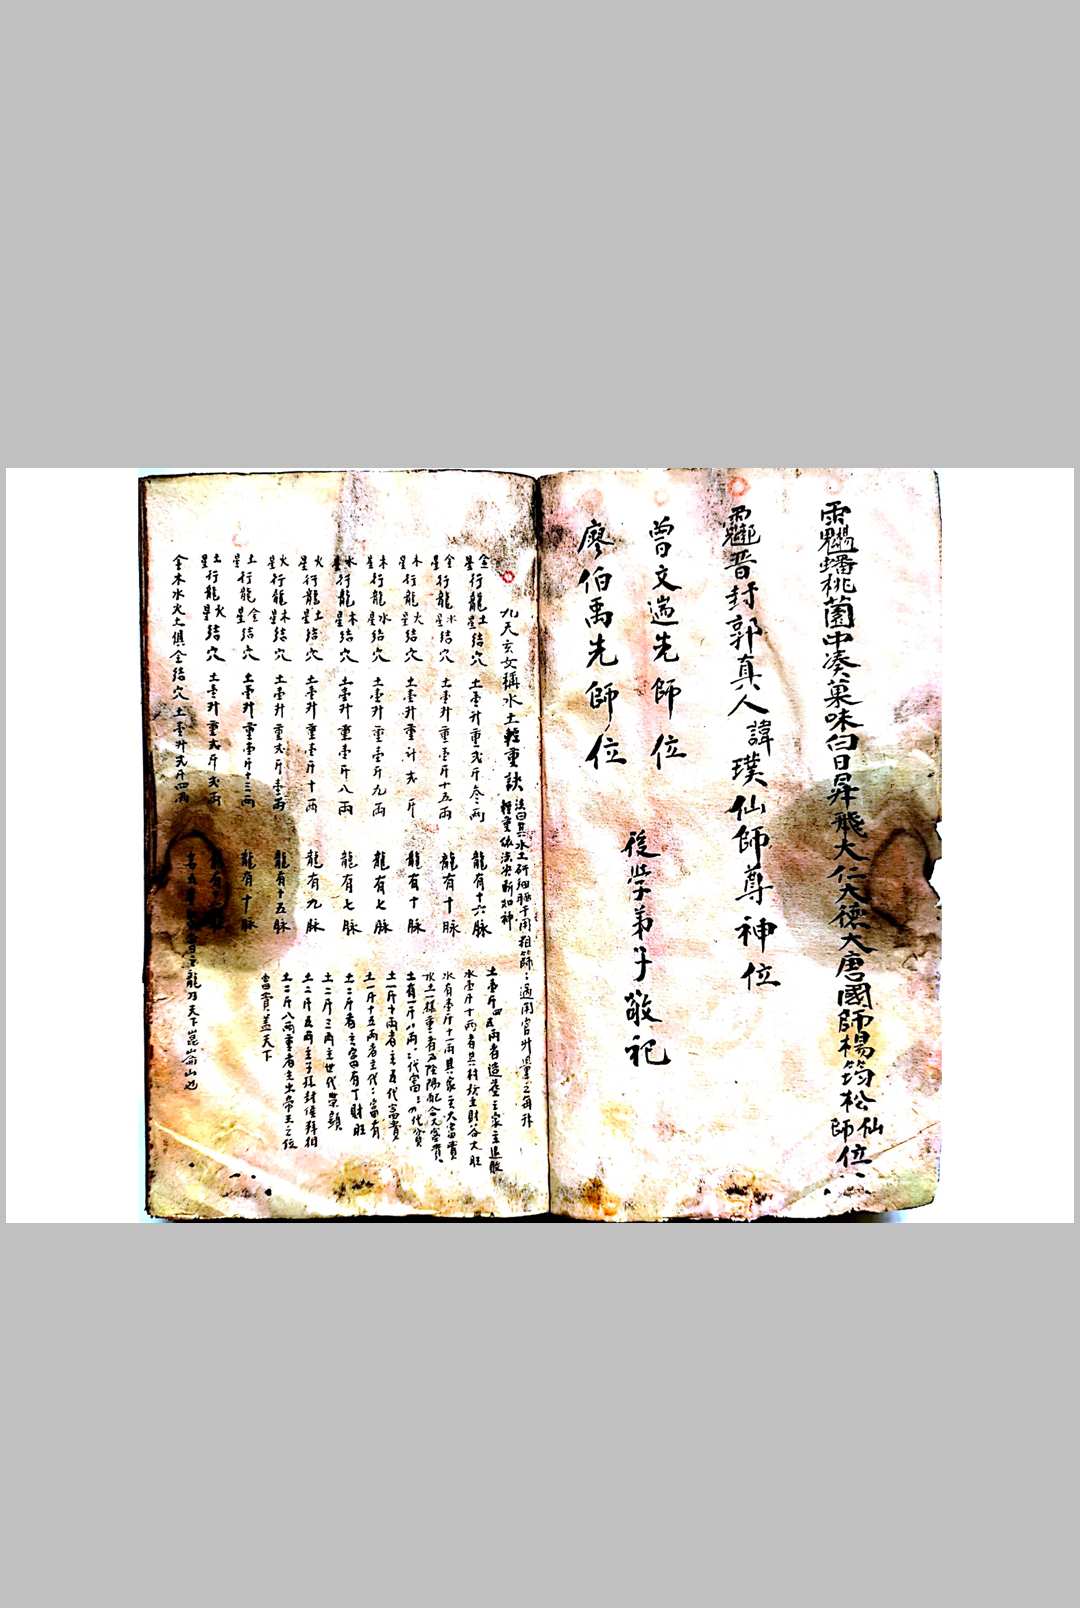 蟠桃園中湊菓味白日昇飛大仁大德大唐國師楊筠松仙師位
晋封郭真人諱璞仙師尊神位
曾文遄先師位
廖伯禹先師位
後學弟子敬祀
九天玄女稱水土輕重訣
法曰其水土研細
輕重依法決断如神
金行龍土星結穴 土壹升重弍斤叁両 龍有十六脉
金行龍水星結穴 土壹升重壹斤十五両 龍有十脉
木行龍火星結穴 土壹升重 弍斤 龍有十脉
木行龍水星結穴 土壹升重壹斤九両 龍有七脉
水行龍木星結穴 土壹升重壹斤八両 龍有七脉
火行龍土星結穴 土壹升重壹斤十両 龍有九脉
火行龍木星結穴 土壹升重弍斤壹両 龍有十五脉
土行龍金星結穴 土壹升重壹斤十三両 龍有十脉
土行龍火星結穴 土壹升重弍斤弍両 龍有 脉
金木水火土俱全結穴 土壹升弍斤四両 龍 天下崑崙山也
土壹斤四五両者造葬主家主退敗
水壹斤十両者其 主財谷大旺
水有壹斤十一両其家主大富貴
水土一樣重者乃陰陽配合大富貴
土有一斤八両 代富 代貧
土一斤十両者主五代富貴
土一斤十五両者主代 富有
土二斤者主富有丁財旺
土二斤三両主世代榮顕
土二斤五両主子孫封侯拜相
土二斤八両重者主出帝王之位
富貴盖天下